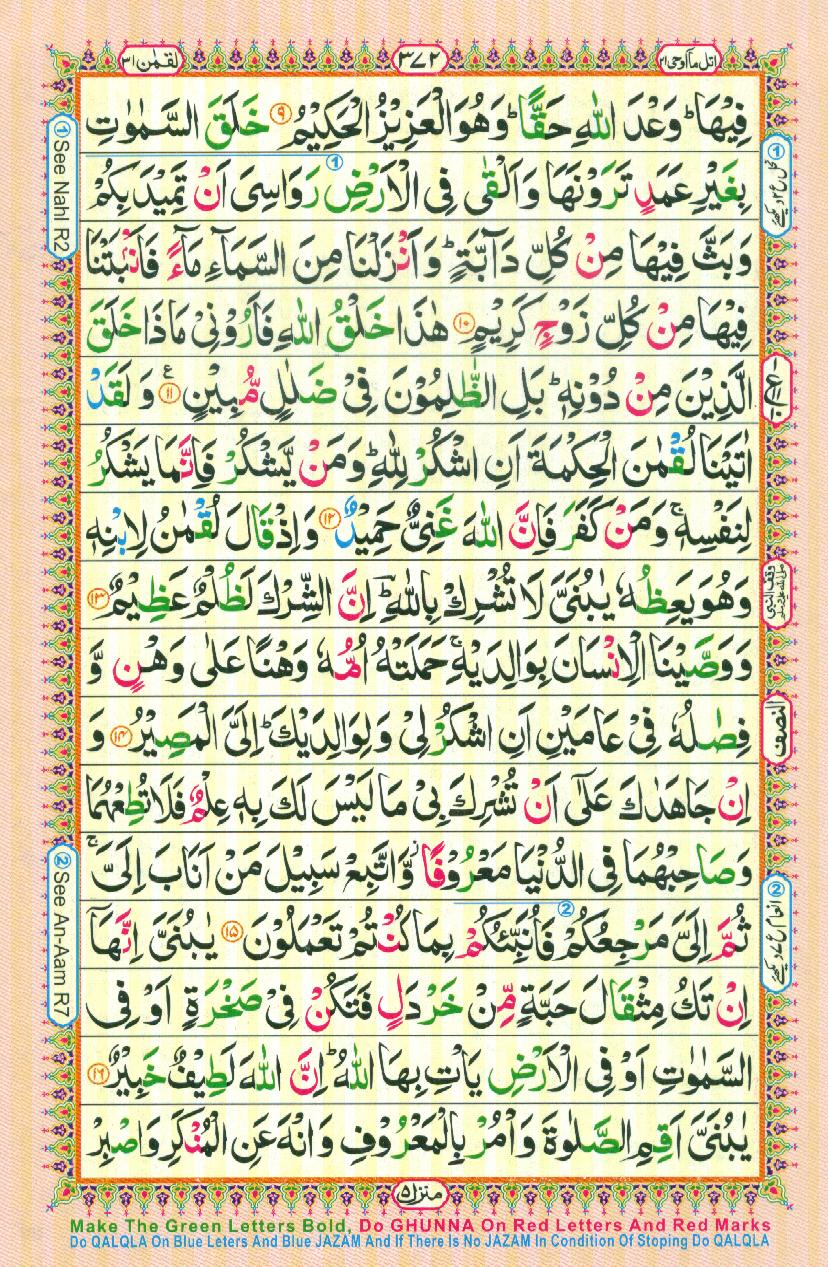 اتل ماۤ اوحی ۲۱
۳۷۲
لقمٰن ۳۱
فِیْهَا ؕ وَعْدَ اللّٰهِ حَقًّا ؕ وَهُوَ الْعَزِیْزُ الْحَكِیْمُ ۹ خَلَقَ السَّمٰوٰتِ
بِغَیْرِ عَمَدٍ تَرَوْنَهَا وَاَلْقٰی فِی الْاَرْضِ رَوَاسِیَ اَنْ تَمِیْدَ بِكُمْ
وَبَثَّ فِیْهَا مِنْ كُلِّ دَآبَّةٍ ؕ وَاَنْزَلْنَا مِنَ السَّمَآءِ مَآءً فَاَنْۢبَتْنَا
فِیْهَا مِنْ كُلِّ زَوْجٍ كَرِیْمٍ ۱۰ هٰذَا خَلْقُ اللّٰهِ فَاَرُوْنِیْ مَاذَا خَلَقَ
الَّذِیْنَ مِنْ دُوْنِهٖ ؕ بَلِ الظّٰلِمُوْنَ فِیْ ضَلٰلٍ مُّبِیْنٍ ۱۱ ع وَ لَقَدْ
اٰتَیْنَا لُقْمٰنَ الْحِكْمَةَ اَنِ اشْكُرْ لِلّٰهِ ؕ وَمَنْ یَّشْكُرْ فَاِنَّمَا یَشْكُرُ
لِنَفْسِهٖ ۚ وَمَنْ كَفَرَ فَاِنَّ اللّٰهَ غَنِیٌّ حَمِیْدٌ ۱۲ وَاِذْ قَالَ لُقْمٰنُ لِابْنِهٖ
وَهُوَ یَعِظُهٗ یٰبُنَیَّ لَا تُشْرِكْ بِاللّٰهِ ؔؕ اِنَّ الشِّرْكَ لَظُلْمٌ عَظِیْمٌ ۱۳
وَوَصَّیْنَا الْاِنْسَانَ بِوَالِدَیْهِ ۚ حَمَلَتْهُ اُمُّهٗ وَهْنًا عَلٰی وَهْنٍ وَّ
فِصٰلُهٗ فِیْ عَامَیْنِ اَنِ اشْكُرْ لِیْ وَلِوَالِدَیْكَ ؕ اِلَیَّ الْمَصِیْرُ ۱۴ وَ
اِنْ جَاهَدٰكَ عَلٰۤی اَنْ تُشْرِكَ بِیْ مَا لَیْسَ لَكَ بِهٖ عِلْمٌ فَلَا تُطِعْهُمَا
وَصَاحِبْهُمَا فِی الدُّنْیَا مَعْرُوْفًا ؗ وَّاتَّبِعْ سَبِیْلَ مَنْ اَنَابَ اِلَیَّ ۚ
ثُمَّ اِلَیَّ مَرْجِعُكُمْ فَاُنَبِّئُكُمْ بِمَا كُنْتُمْ تَعْمَلُوْنَ ۱۵ یٰبُنَیَّ اِنَّهَاۤ
اِنْ تَكُ مِثْقَالَ حَبَّةٍ مِّنْ خَرْدَلٍ فَتَكُنْ فِیْ صَخْرَةٍ اَوْ فِی
السَّمٰوٰتِ اَوْ فِی الْاَرْضِ یَاْتِ بِهَا اللّٰهُ ؕ اِنَّ اللّٰهَ لَطِیْفٌ خَبِیْرٌ ۱۶
یٰبُنَیَّ اَقِمِ الصَّلٰوةَ وَاْمُرْ بِالْمَعْرُوْفِ وَانْهَ عَنِ الْمُنْكَرِ وَاصْبِرْ
النصف
① See Nahl R2
② See An-Aam R7
منزل ۵
Make The Green Letters Bold, Do GHUNNA On Red Letters And Red Marks
Do QALQLA On Blue Leters And Blue JAZAM And If There Is No JAZAM In Condition Of Stoping Do QALQLA